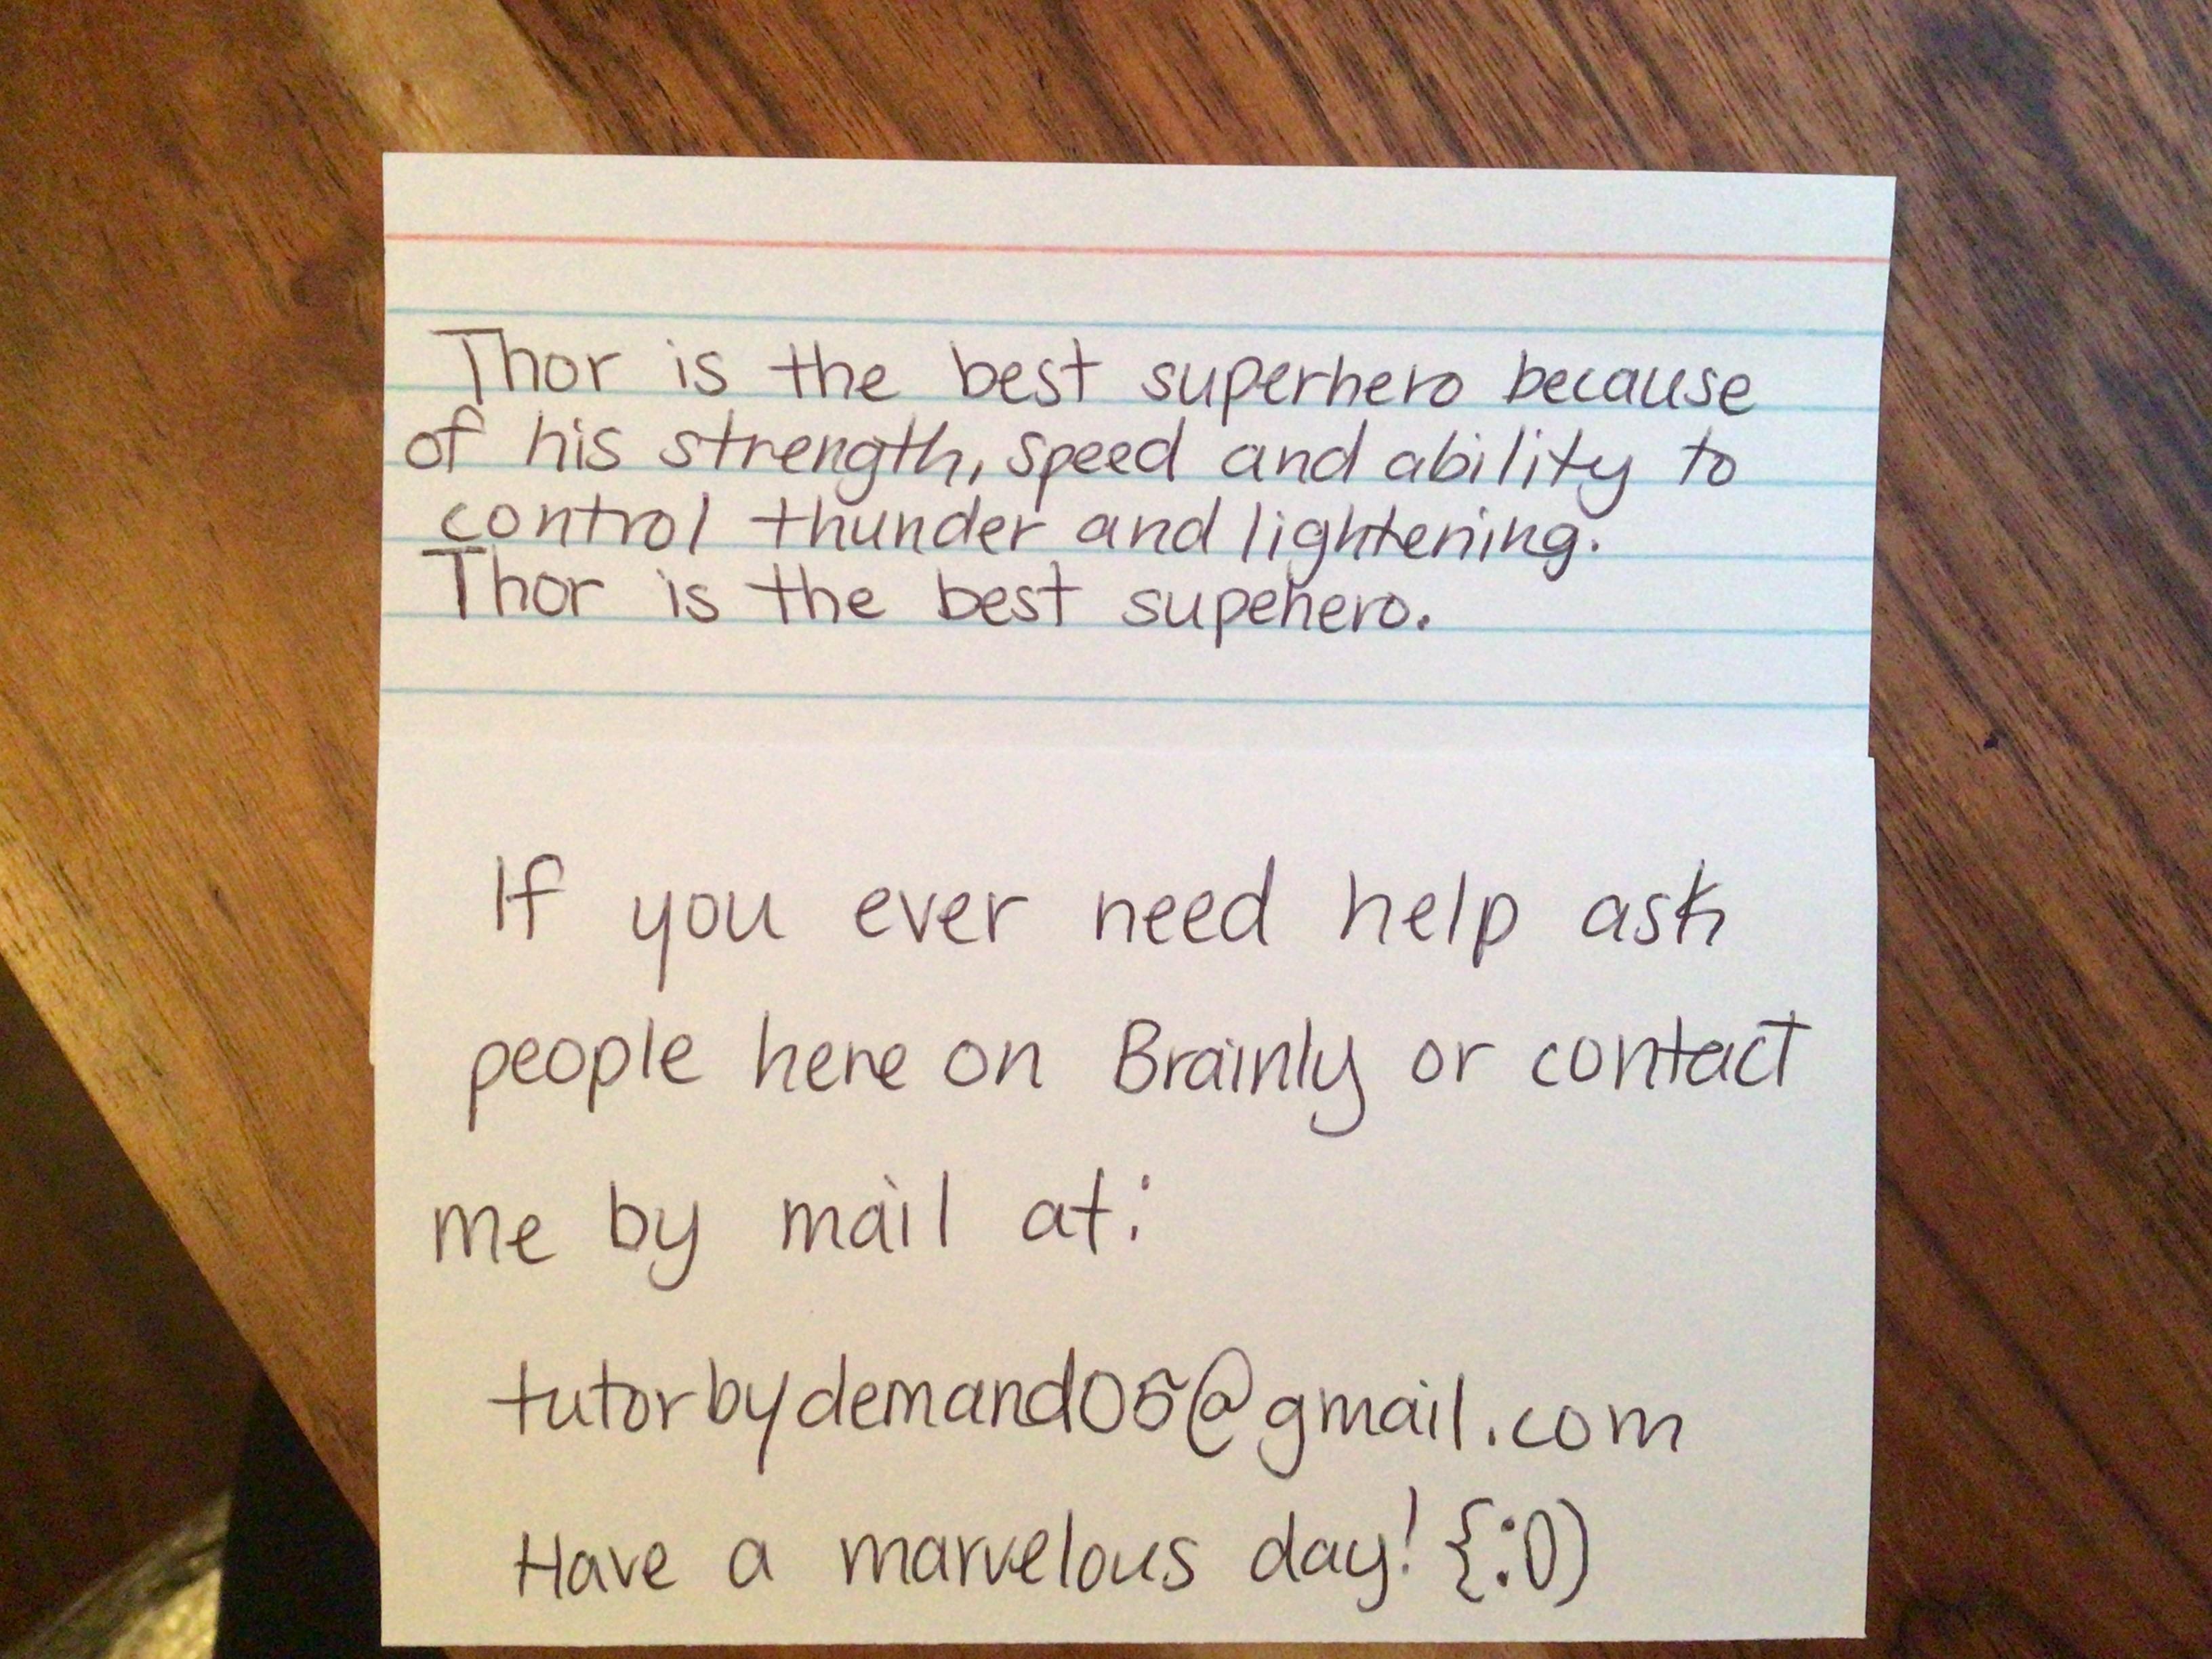 Thor is the best superhero because
of his strength, speed and ability to
control thunder and lightening.
Thor is the best supehero.
If you ever need help ask
people here on Brainly or contact
me by mail at:
tutorbydemand05@gmail.com
Have a marvelous day! {:0)